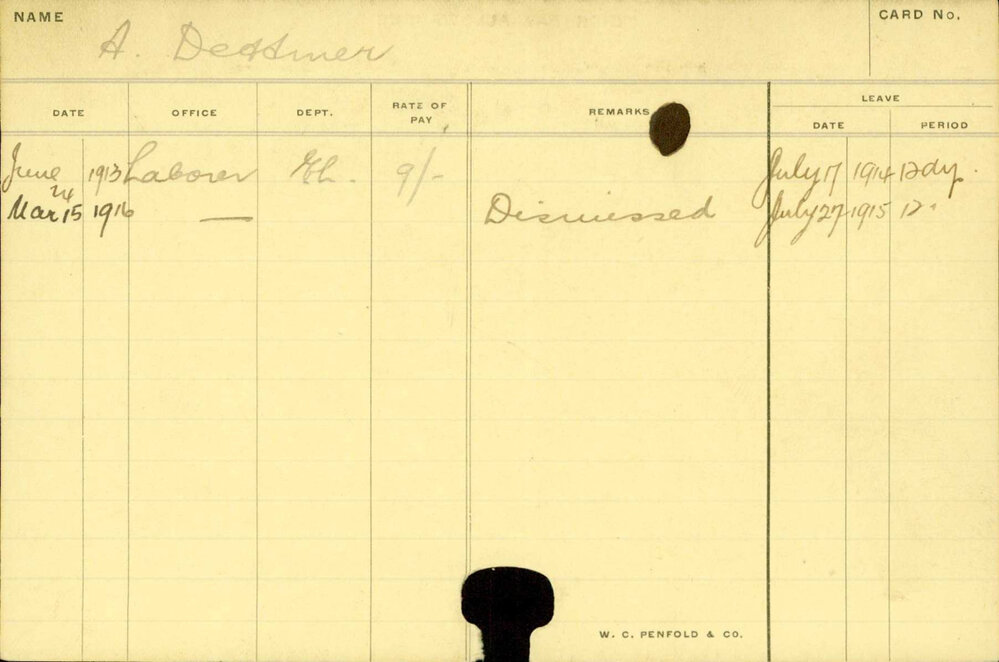 NAME
A. Dettmer
CARD No.
DATE OFFICE DEPT. RATE OF PAY REMARKS LEAVE
DATE PERIOD
June 24 1913 Laborer 9/- July 17 1914 12 dy.
Mar 15 1916 — Dismissed July 27 1915 12 "
W. C. PENFOLD & CO.